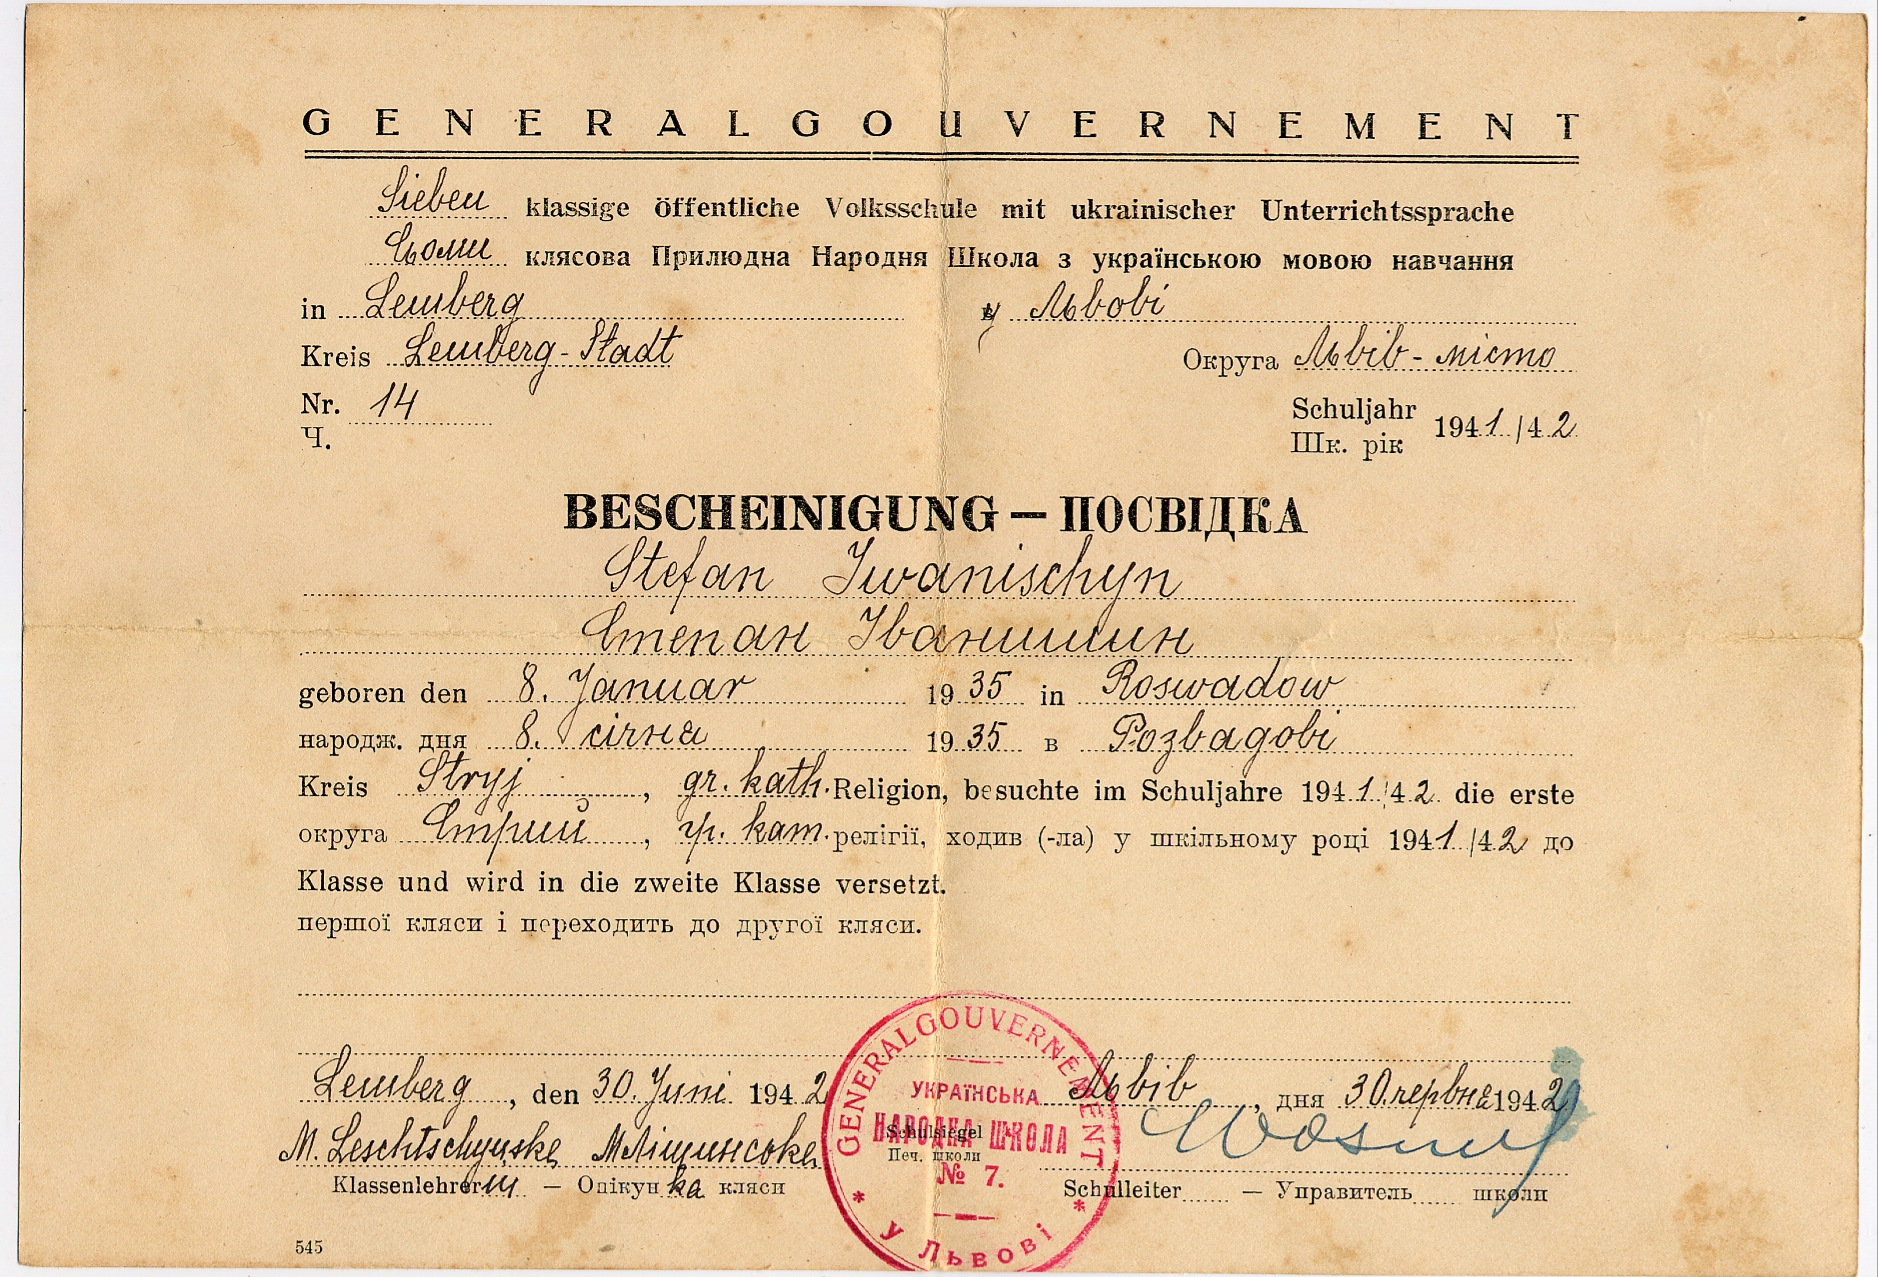 GENERALGOUVERNEMENT
Sieben klassige öffentliche Volksschule mit ukrainischer Unterrichtssprache
Сьоми клясова Прилюдна Народня Школа з українською мовою навчання
in Lemberg у Львові
Kreis Lemberg-Stadt Округа Львів-місто
Nr. 14 Schuljahr 1941/42
Ч. Шк. рік
BESCHEINIGUNG — ПОСВІДКА
Stefan Iwanischyn
Степан Іванишин
geboren den 8. Januar 1935 in Roswadow
народж. дня 8. січня 1935 в Розвадові
Kreis Stryj, gr. kath. Religion, besuchte im Schuljahre 1941/42 die erste
округа Стрий, гр. кат. релігії, ходив (-ла) у шкільному році 1941/42 до
Klasse und wird in die zweite Klasse versetzt.
першої кляси і переходить до другої кляси.
Lemberg, den 30. Juni 1942 Львів, дня 30 червня 1942
M. Leschtschynska М Ліщинська
Klassenlehrerin — Опікунка кляси Schulleiter — Управитель школи
Schulsiegel
Печ. школи
GENERALGOUVERNEMENT
УКРАЇНСЬКА
НАРОДНА ШКОЛА
№ 7.
* У ЛЬВОВІ *
545